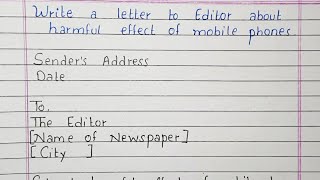 Write a letter to Editor about
harmful effect of mobile phones.
Sender's Address
Date
To,
The Editor
[Name of Newspaper]
[City ]